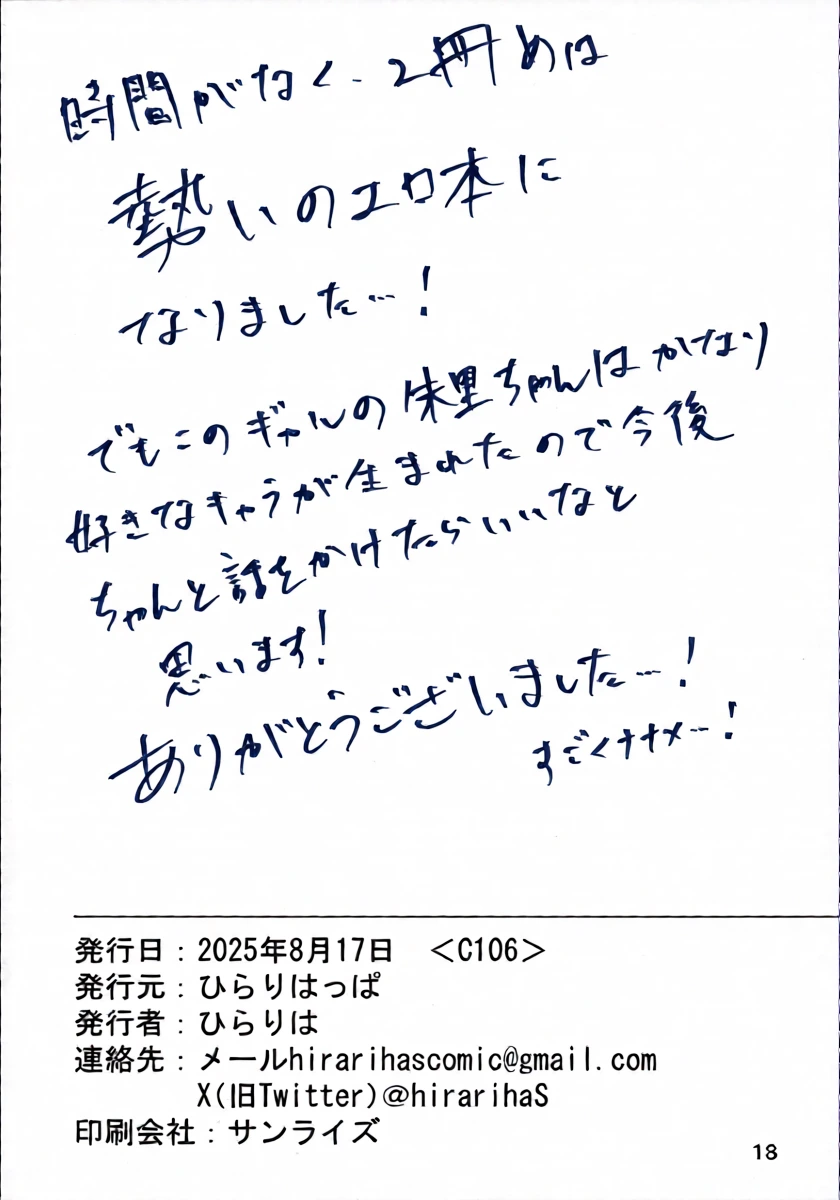 時間がなく、2冊めは
勢いのエロ本に
なりました…!
でもこのギャルの朱里ちゃんはかなり
好きなキャラが生まれたので今後
ちゃんと話をかけたらいいなと
思います!
ありがとうございました…!
すごくナナメ…!
発行日:2025年8月17日 <C106>
発行元:ひらりはっぱ
発行者:ひらりは
連絡先:メールhirarihascomic@gmail.com
X(旧Twitter)@hirarihaS
印刷会社:サンライズ
18